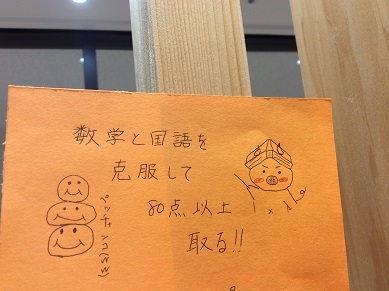 数学と国語を
克服して
80点以上
取る!!
ペッチャンコ(ww)